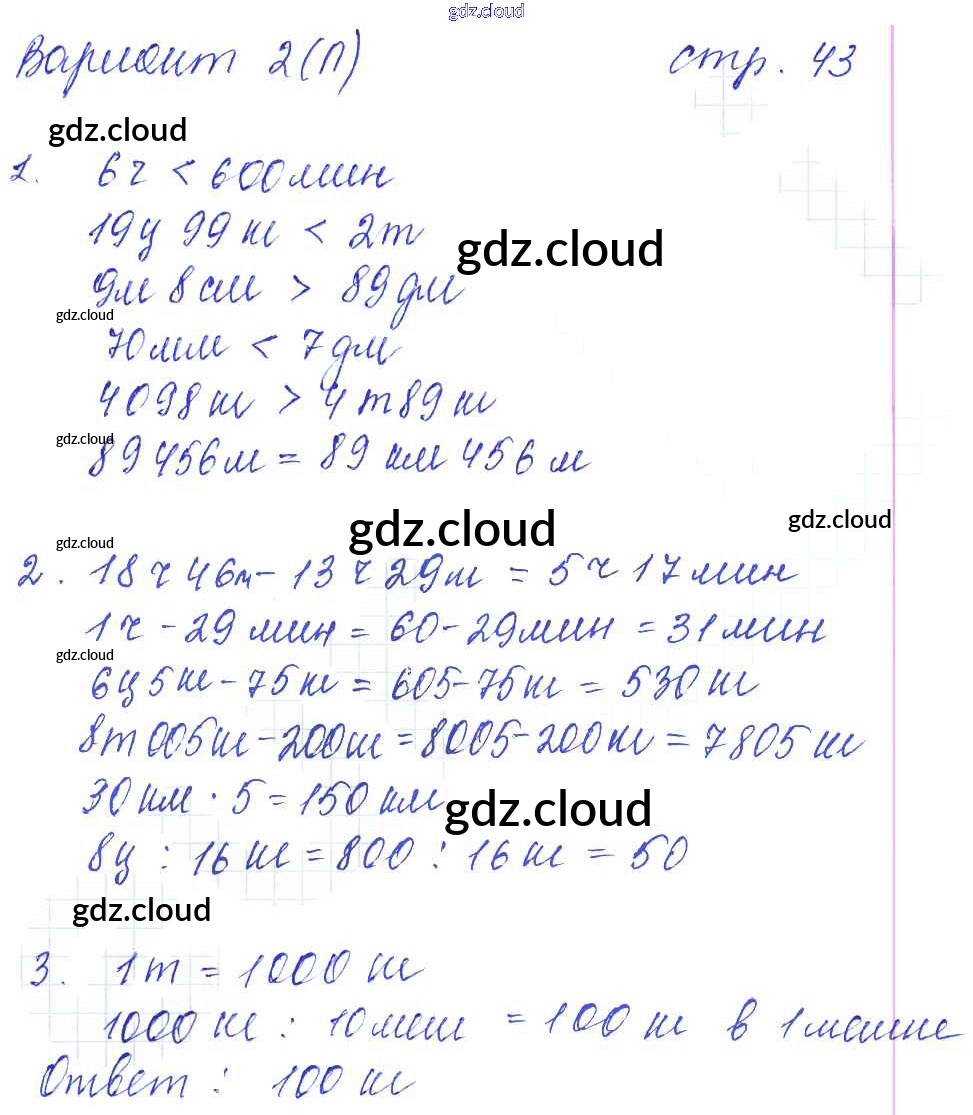 gdz.cloud
Вариант 2(П) стр. 43
gdz.cloud
1. 6 ч < 600 мин
19ц 99 кг < 2т
gdz.cloud
9м 8 см > 89 дм
gdz.cloud
70 мм < 7 дм
4098 кг > 4 т 89 кг
gdz.cloud
89 456 м = 89 км 456 м
gdz.cloud
gdz.cloud
gdz.cloud
2. 18 ч 46м - 13 ч 29м = 5 ч 17 мин
1ч - 29 мин = 60 - 29 мин = 31 мин
gdz.cloud
6ц 5 кг - 75 кг = 605 - 75 кг = 530 кг
8т 005 кг - 200 кг = 8005 - 200 кг = 7805 кг
30 км · 5 = 150 км
gdz.cloud
8ц : 16 кг = 800 : 16 кг = 50
gdz.cloud
3. 1т = 1000 кг
1000 кг : 10 меш = 100 кг в 1 мешке
Ответ : 100 кг